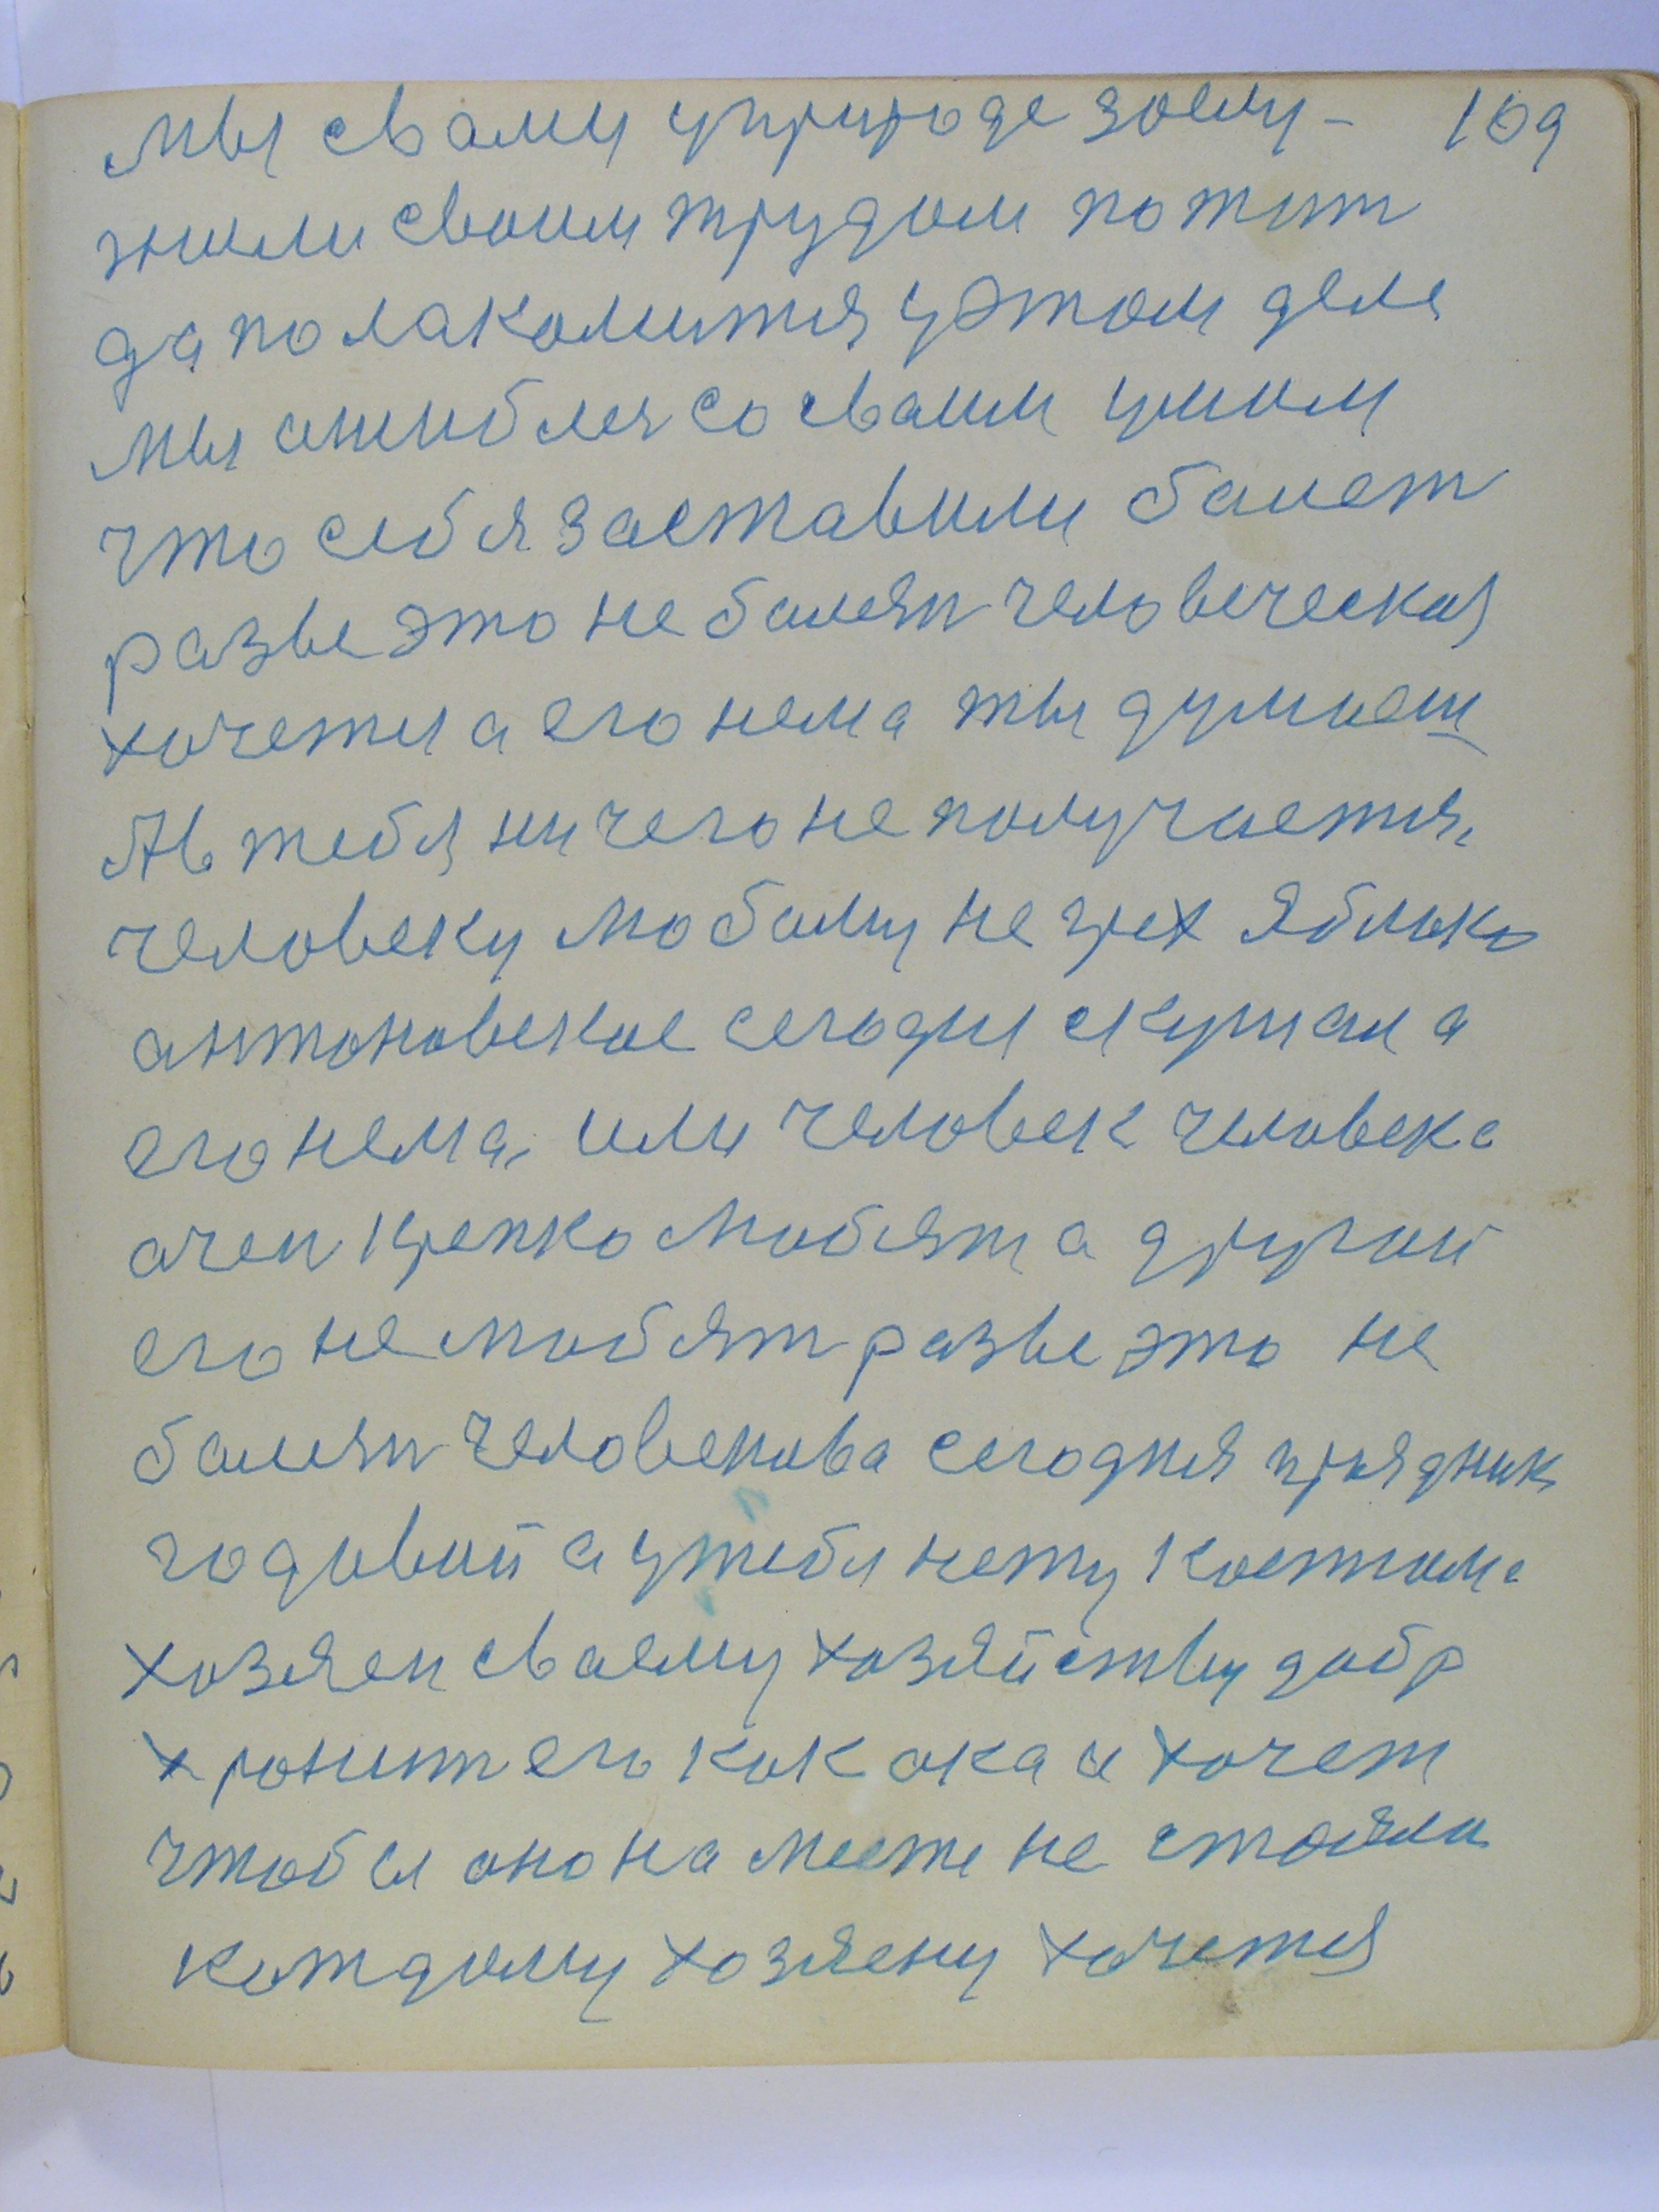 мы с вами у природе заслу- 109
жили своим трудом пожит
да полакомится у этом деле
мы ошиблся со своим умом
что себя заставили балет
разве это не балезн человеческая
хочется а его нема ты думаеш
А в тебя ничего не получается,
человеку любому не грех яблоко
антоновское сегодня скушал а
его нема, или человек человека
очен крепко любят а другой
его не любят разве это не
балезн человекова сегодня праздник
годовой а у тебя нету костюма
хозяен своему хозяйству добр
хронит его как ока и хочет
чтобы оно на месте не стояло
каждому хозяену хочется